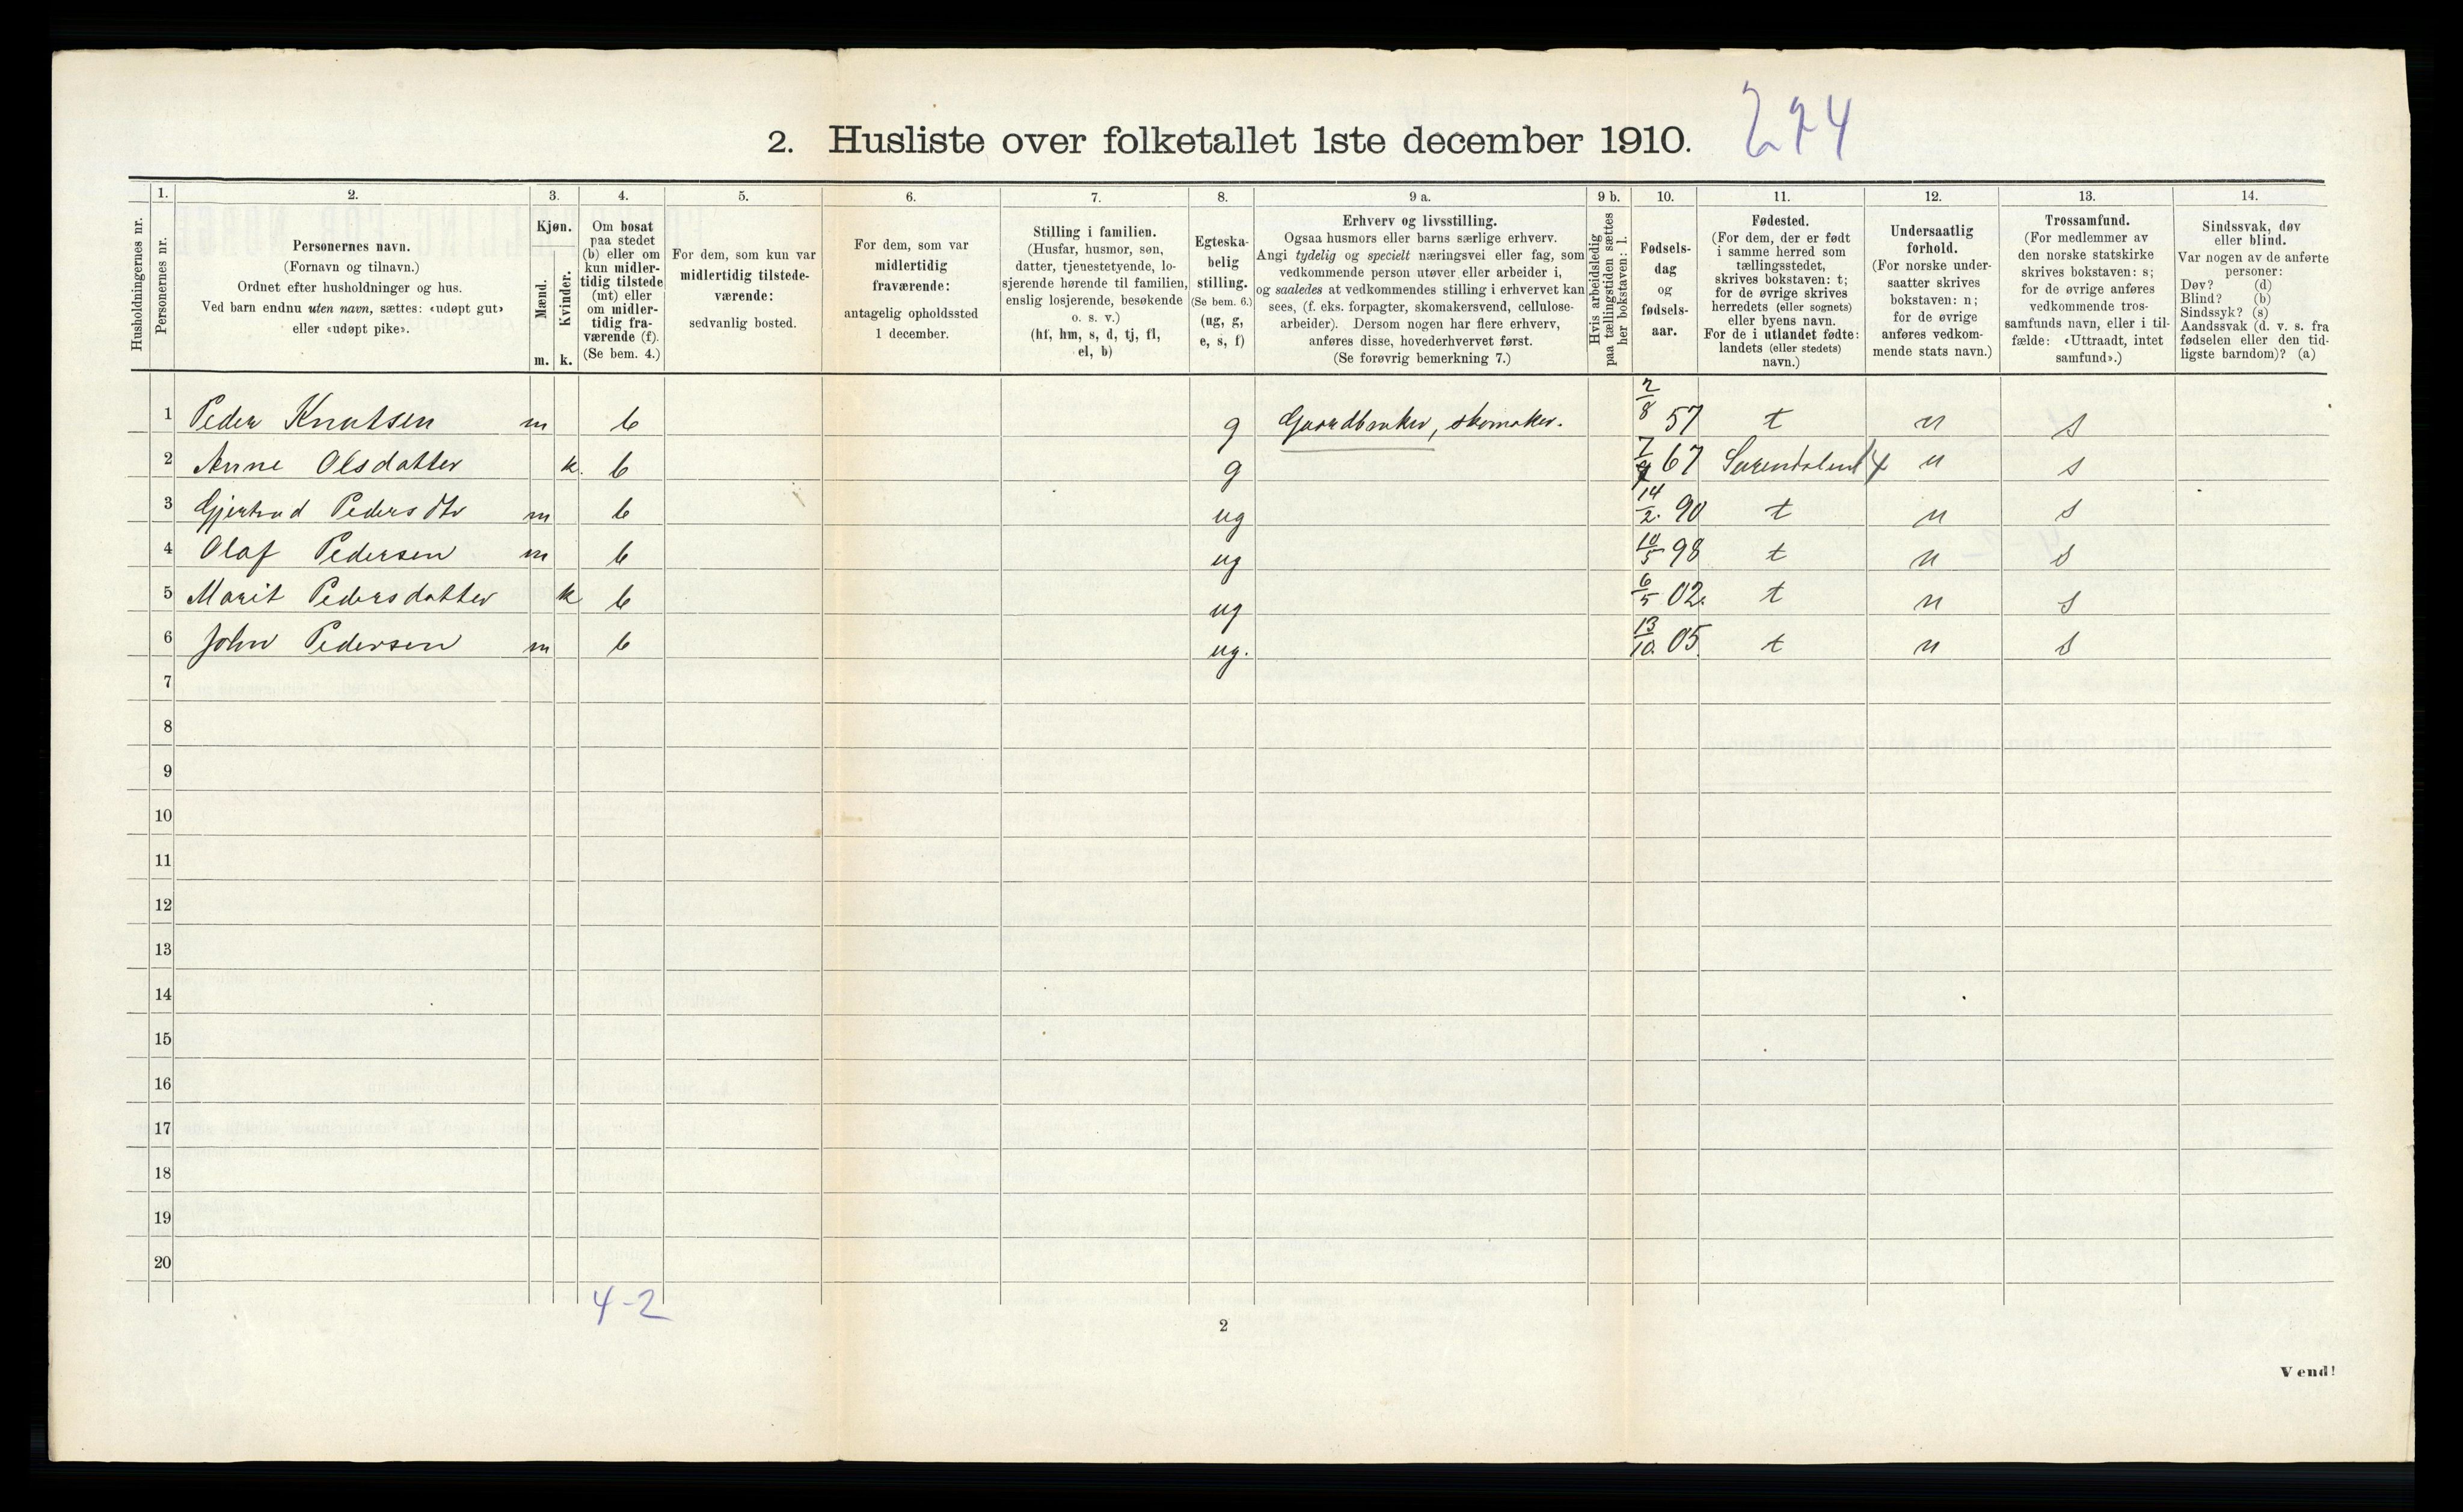 2. Husliste over folketallet 1ste december 1910. 274
1. 2. 3. 4. 5. 6. 7. 8. 9 a. 9 b. 10. 11. 12. 13. 14.
Husholdningernes nr.
Personernes nr.
Personernes navn.
(Fornavn og tilnavn.)
Ordnet efter husholdninger og hus.
Ved barn endnu uten navn, sættes: «udøpt gut»
eller «udøpt pike».
Kjøn.
Mænd.
Kvinder.
m. k.
Om bosat
paa stedet
(b) eller om
kun midler-
tidig tilstede
(mt) eller
om midler-
tidig fra-
værende (f).
(Se bem. 4.)
For dem, som kun var
midlertidig tilstede-
værende:
sedvanlig bosted.
For dem, som var
midlertidig
fraværende:
antagelig opholdssted
1 december.
Stilling i familien.
(Husfar, husmor, søn,
datter, tjenestetyende, lo-
sjerende hørende til familien,
enslig losjerende, besøkende
o. s. v.)
(hf, hm, s, d, tj, fl,
el, b)
Egteska-
belig
stilling.
(Se bem. 6.)
(ug, g,
e, s, f)
Erhverv og livsstilling.
Ogsaa husmors eller barns særlige erhverv.
Angi tydelig og specielt næringsvei eller fag, som
vedkommende person utøver eller arbeider i,
og saaledes at vedkommendes stilling i erhvervet kan
sees, (f. eks. forpagter, skomakersvend, cellulose-
arbeider). Dersom nogen har flere erhverv,
anføres disse, hovederhvervet først.
(Se forøvrig bemerkning 7.)
Hvis arbeidsledig
paa tællingstiden sættes
her bokstaven: l.
Fødsels-
dag
og
fødsels-
aar.
Fødested.
(For dem, der er født
i samme herred som
tællingsstedet,
skrives bokstaven: t;
for de øvrige skrives
herredets (eller sognets)
eller byens navn.
For de i utlandet fødte:
landets (eller stedets)
navn.)
Undersaatlig
forhold.
(For norske under-
saatter skrives
bokstaven: n;
for de øvrige
anføres vedkom-
mende stats navn.)
Trossamfund.
(For medlemmer av
den norske statskirke
skrives bokstaven: s;
for de øvrige anføres
vedkommende tros-
samfunds navn, eller i til-
fælde: «Uttraadt, intet
samfund».)
Sindssvak, døv
eller blind.
Var nogen av de anførte
personer:
Døv? (d)
Blind? (b)
Sindssyk? (s)
Aandssvak (d. v. s. fra
fødselen eller den tid-
ligste barndom)? (a)
1 Peder Knutsen m b g Gaardbruker, skomaker. 2/8 57 t n s
2 Anne Olsdatter k. b g 7/9 67 Surendalen 4 n s
3 Gjertrud Pedersdtr m b ug 14/2. 90 t n s
4 Olaf Pedersen m b ug 10/5 98 t n s
5 Marit Pedersdatter k b ug 6/5 02. t n s
6 John Pedersen m b ug. 13/10. 05. t n s
7
8
9
10
11
12
13
14
15
16
17
18
19
20
4-2
2
Vend!